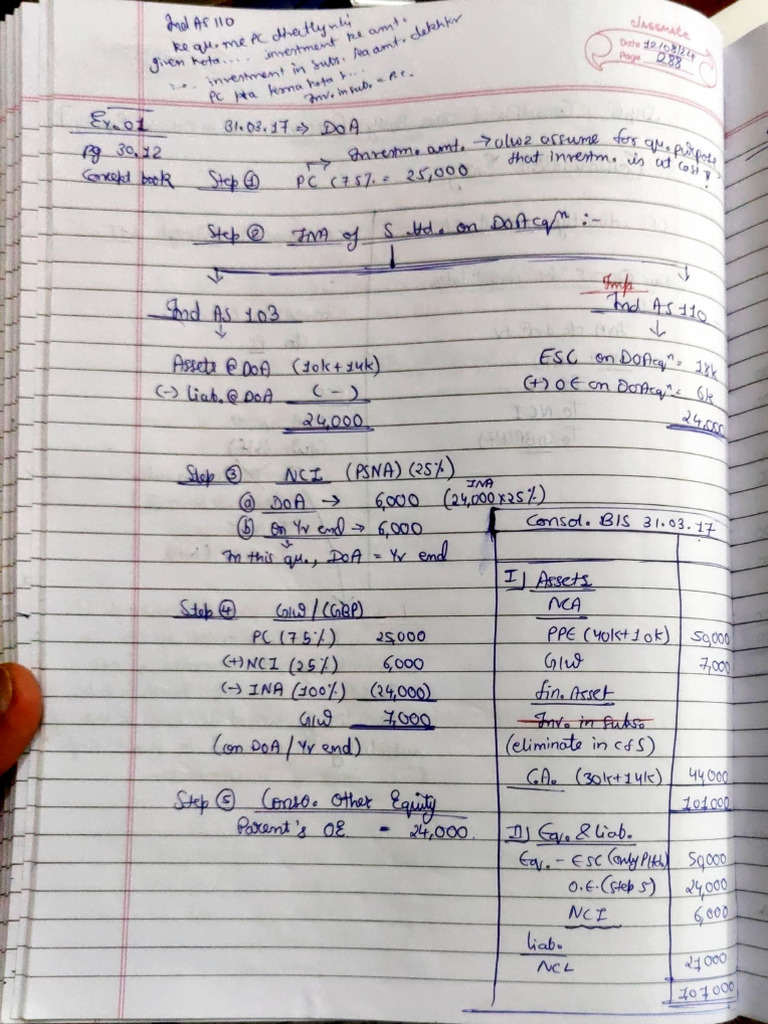 Ind AS 110
ke qu. me PC directly nhi
given hota.... investment ke amt.
∴ investment in subs. ka amt. dekhkr
PC pta krna hota h...
Inv. in subs = P.C.
classmate
Date 12/08/24
Page 088
Ex. 01
31.03.17 ⇒ DoA
pg 30.12
Concept book
Investm. amt. → alwz assume for qu. purpose
that investm. is at cost
Step ① PC (75% = 25,000
Step ② INA of S ltd. on DoAcqⁿ :-
Ind AS 103
↓
Assets @ DoA (10k+14k)
(-) liab. @ DoA (-)
24,000
Imp
Ind AS 110
↓
ESC on DoAcqⁿ = 18k
(+) OE on DoAcqⁿ = 6k
24,000
Step ③ NCI (PSNA) (25%)
INA
ⓐ DOA → 6,000 (24,000 x 25%)
ⓑ on Yr end → 6,000
In this qu., DoA = Yr end
Step ④ G/W / (GBP)
PC (75%) 25,000
(+) NCI (25%) 6,000
(-) INA (100%) (24,000)
G/W 7,000
(on DoA / Yr end)
Step ⑤ Conso. Other Equity
Parent's OE = 24,000
Consol. B/S 31.03.17
I) Assets
NCA
PPE (40k+10k) 50,000
G/W 7,000
fin. Asset
Inv. in subs.
(eliminate in CFS)
C.A. (30k+14k) 44,000
101000
II) Eq. & liab.
Eq. - ESC (only P/Hol.) 50,000
O.E. (Step 5) 24,000
NCI 6,000
liab.
NCL 21000
101000